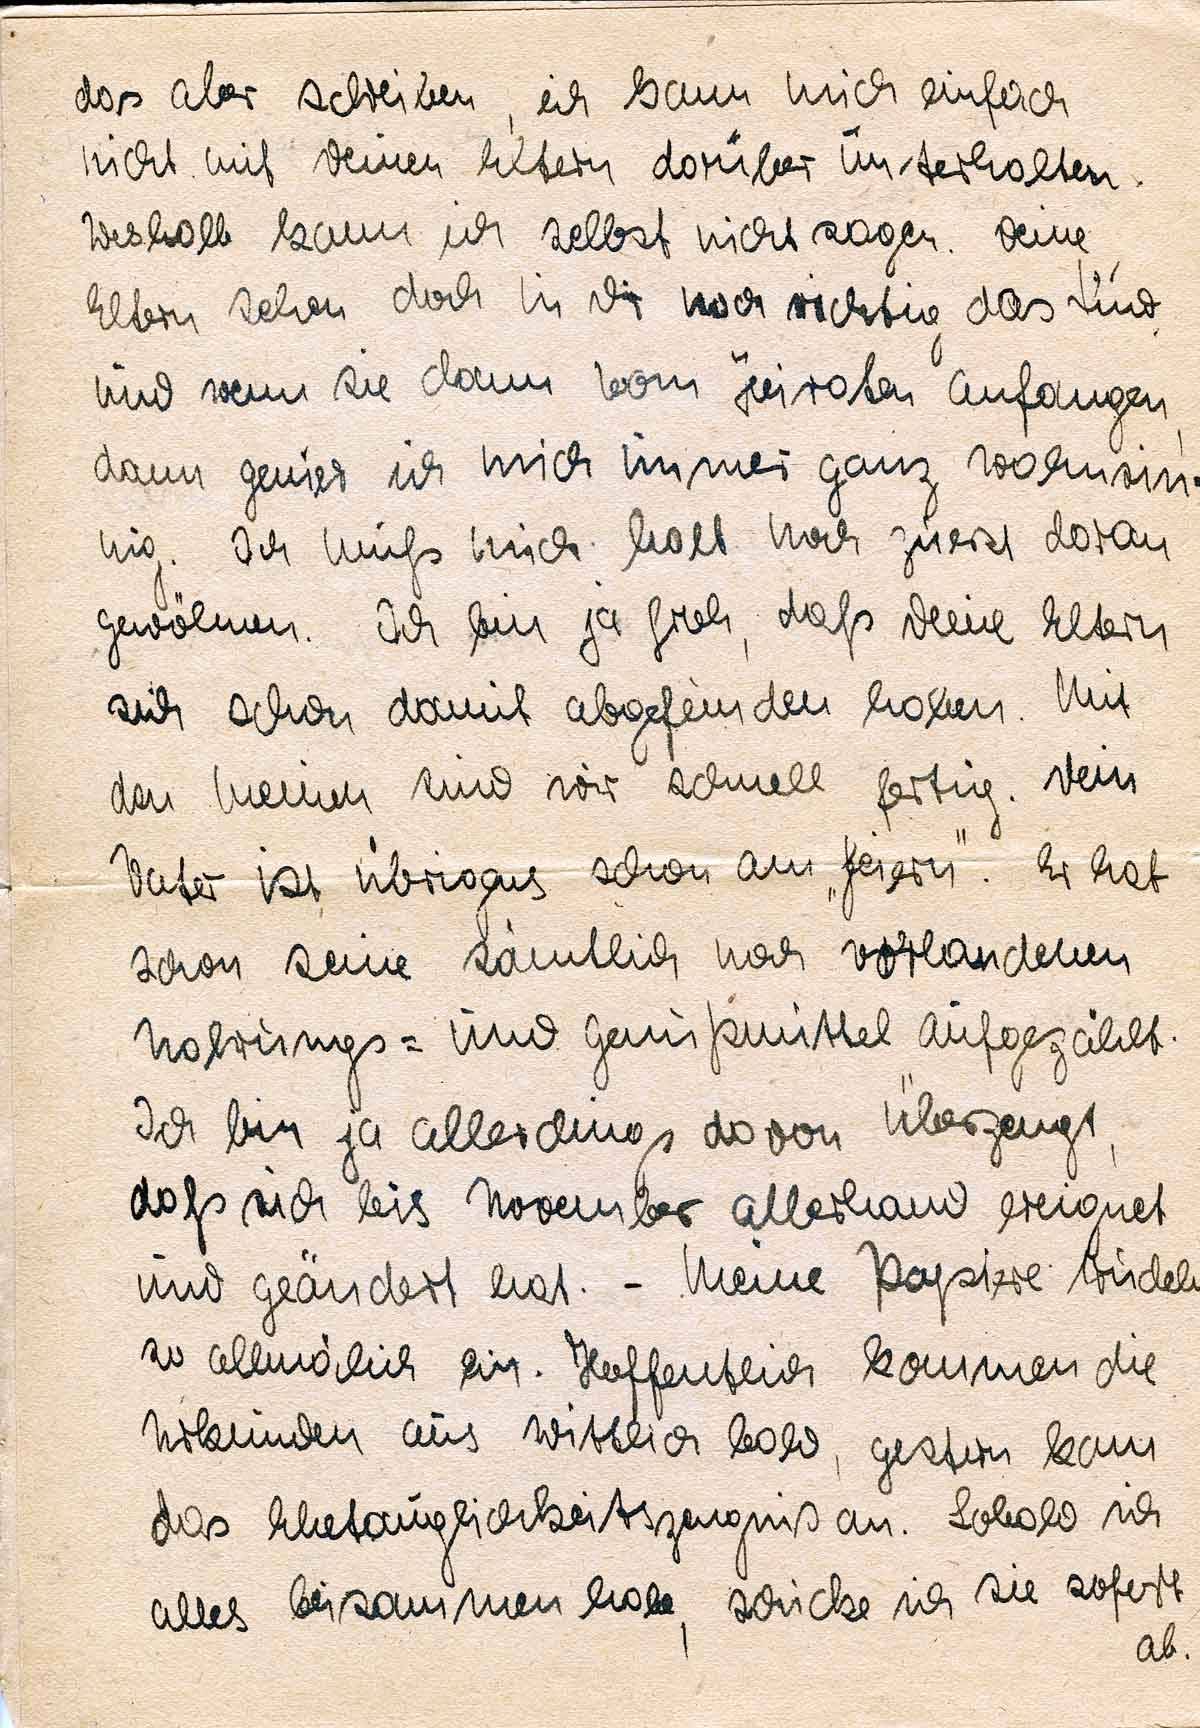 das aber schreiben, ich kann mich einfach
nicht mit Deinen Eltern darüber unterhalten.
Weshalb kann ich selbst nicht sagen. Deine
Eltern sehen doch in Dir noch richtig das Kind
und wenn sie dann vom Heiraten anfangen,
dann genier ich mich immer ganz wahnsin-
nig. Ich muß mich halt noch zuerst daran
gewöhnen. Ich bin ja froh, daß Deine Eltern
sich schon damit abgefunden haben. Mit
den Meinen sind wir schnell fertig. Dein
Vater ist übrigens schon am „feiern“. Er hat
schon seine sämtlich noch vorhandenen
Nahrungs= und Genußmittel aufgezählt.
Ich bin ja allerdings davon überzeugt,
daß sich bis November allerhand ereignet
und geändert hat. – Meine Papiere trudeln
so allmälich ein. Hoffentlich kommen die
Urkunden aus Wittlich bald, gestern kam
das Ehetauglichkeitszeugniß an. Sobald ich
alles beisammen habe, schicke ich sie sofort
ab.